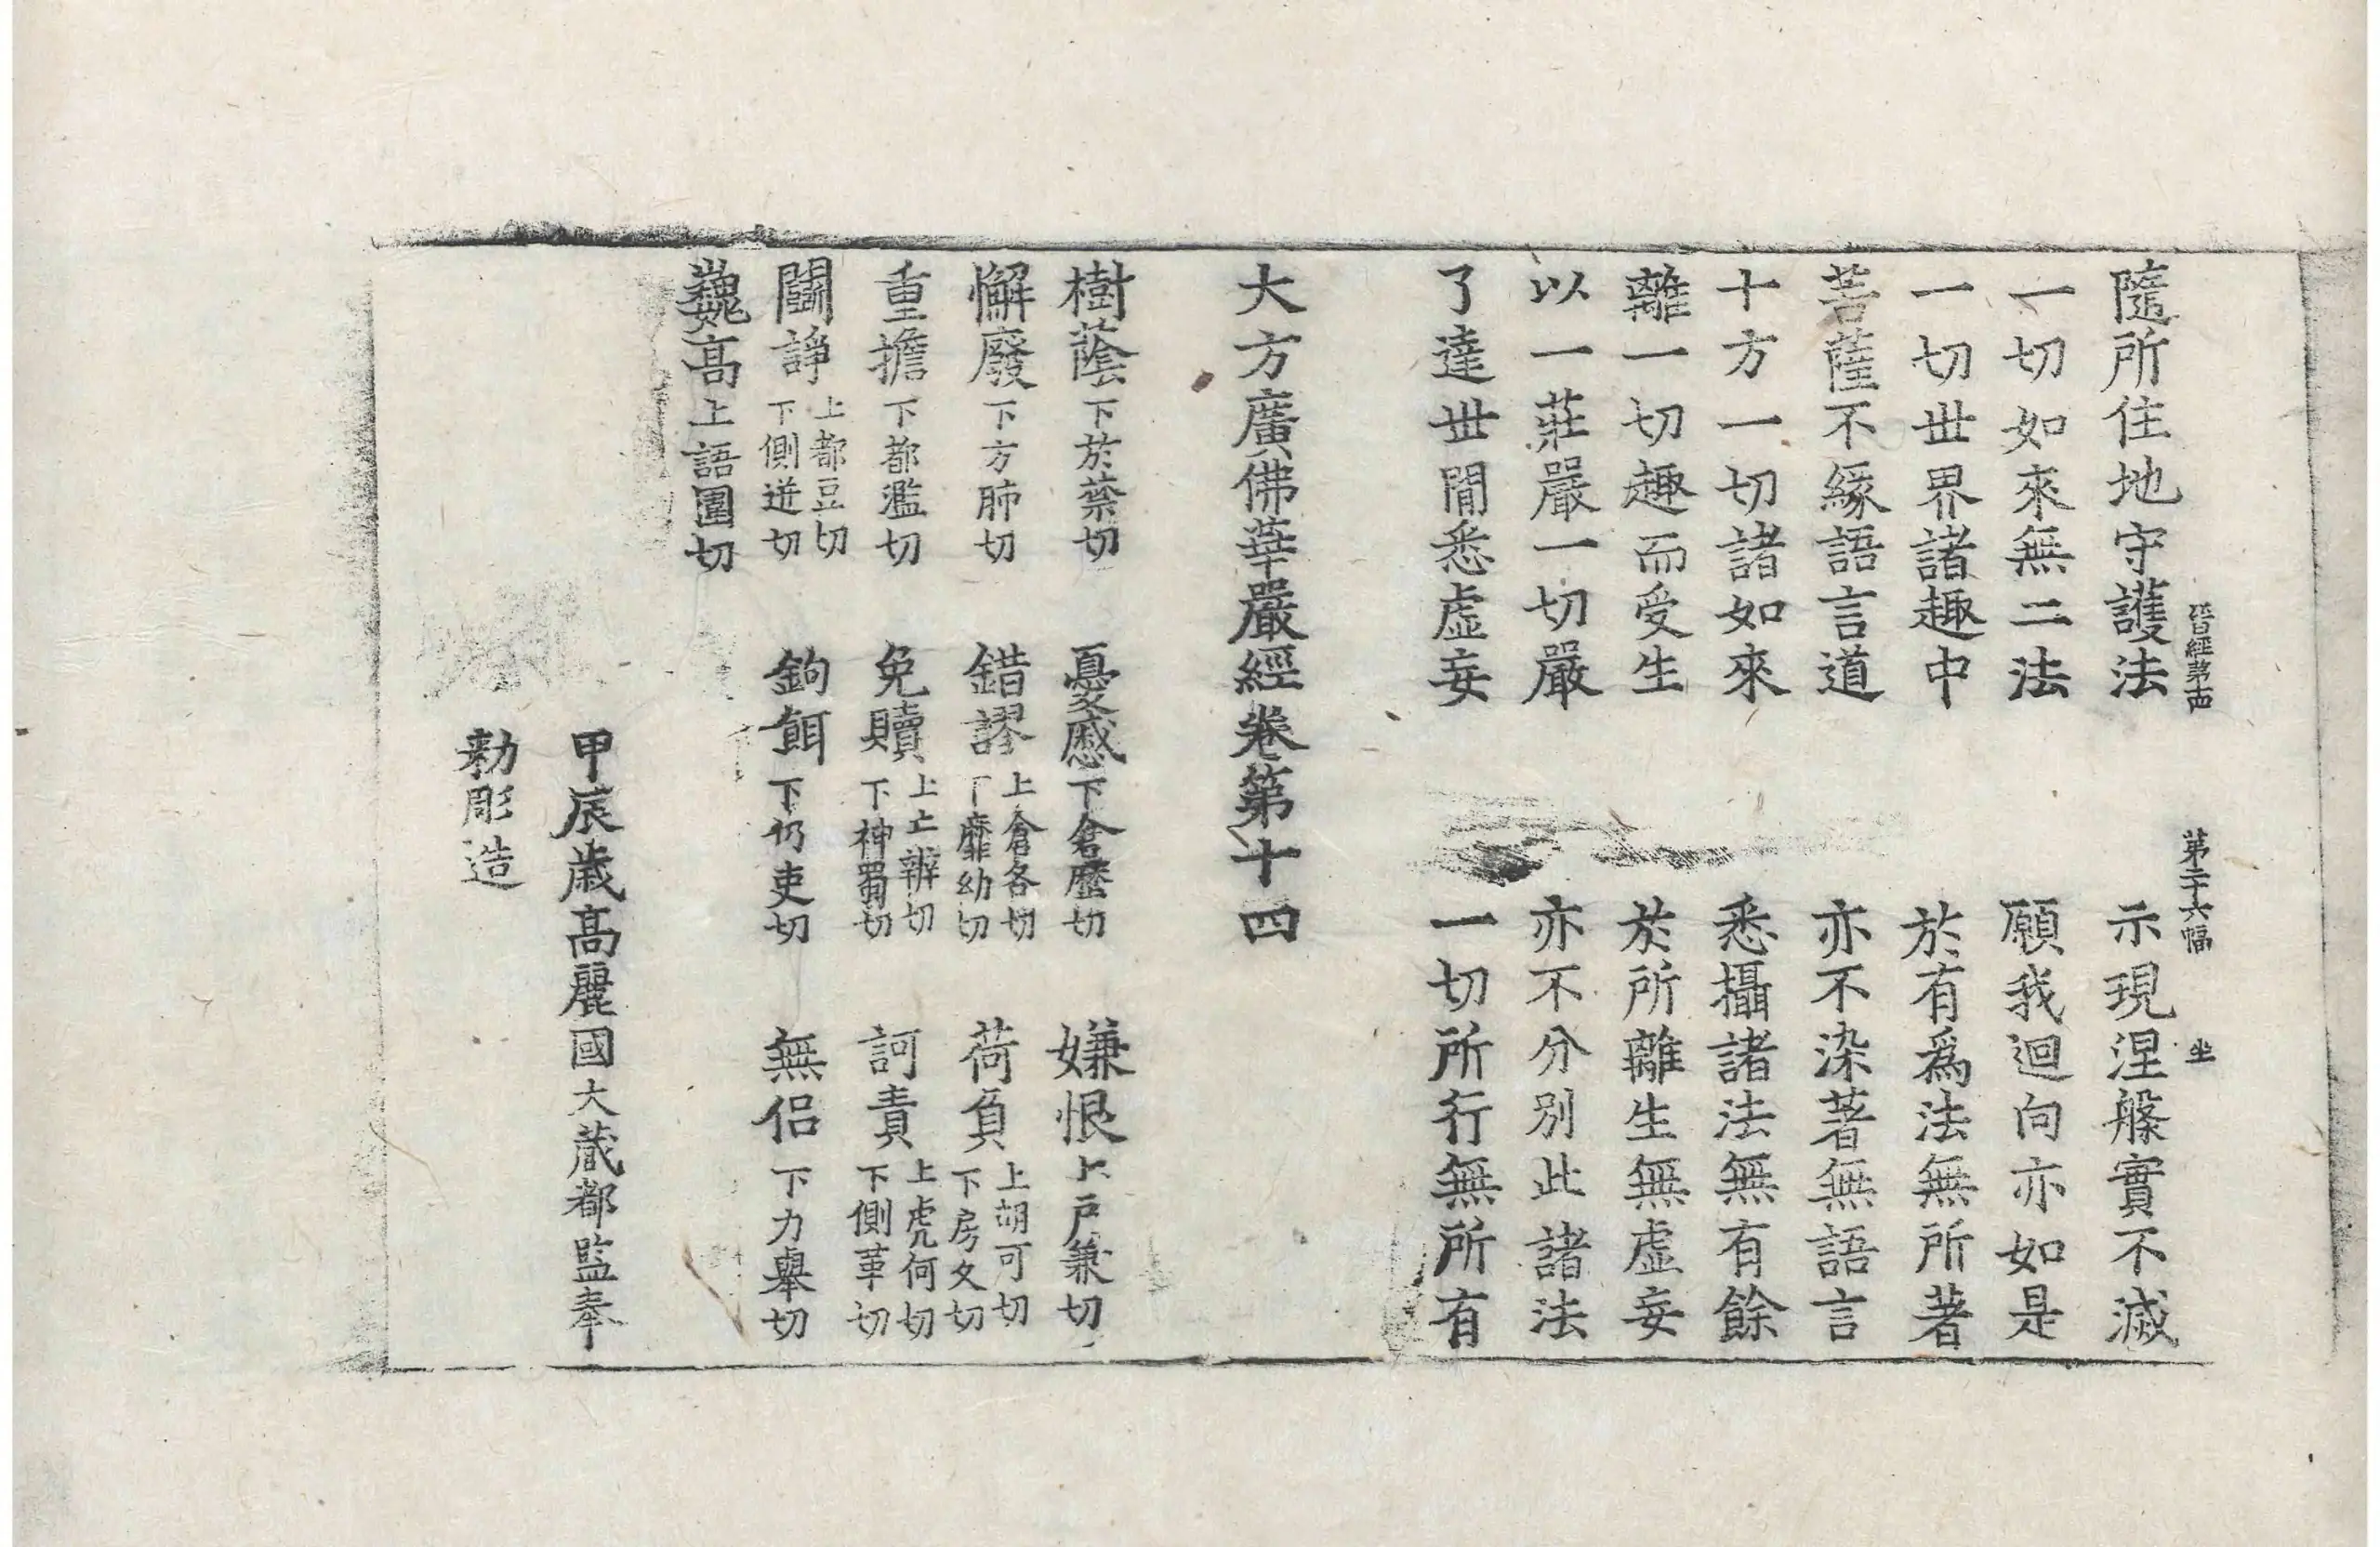 晉經第十四 第二十六幅 坐
隨所住地守護法 示現涅槃實不滅
一切如來無二法 願我迴向亦如是
一切世界諸趣中 於有爲法無所著
菩薩不緣語言道 亦不染著無語言
十方一切諸如來 悉攝諸法無有餘
離一切趣而受生 於所離生無虛妄
以一莊嚴一切嚴 亦不分別此諸法
了達世閒悉虛妄 一切所行無所有
大方廣佛華嚴經卷第十四
樹蔭下於禁切 憂慼下倉歷切 嫌恨上戶兼切
懈廢下方肺切 錯謬上倉各切下靡幼切 荷負上胡可切下房久切
重擔下都濫切 免贖上亡辨切下神蜀切 訶責上虎何切下側革切
鬪諍上都豆切下側迸切 鉤餌下仍吏切 無侶下力舉切
巍高上語圍切
甲辰歲高麗國大藏都監奉
勅彫造